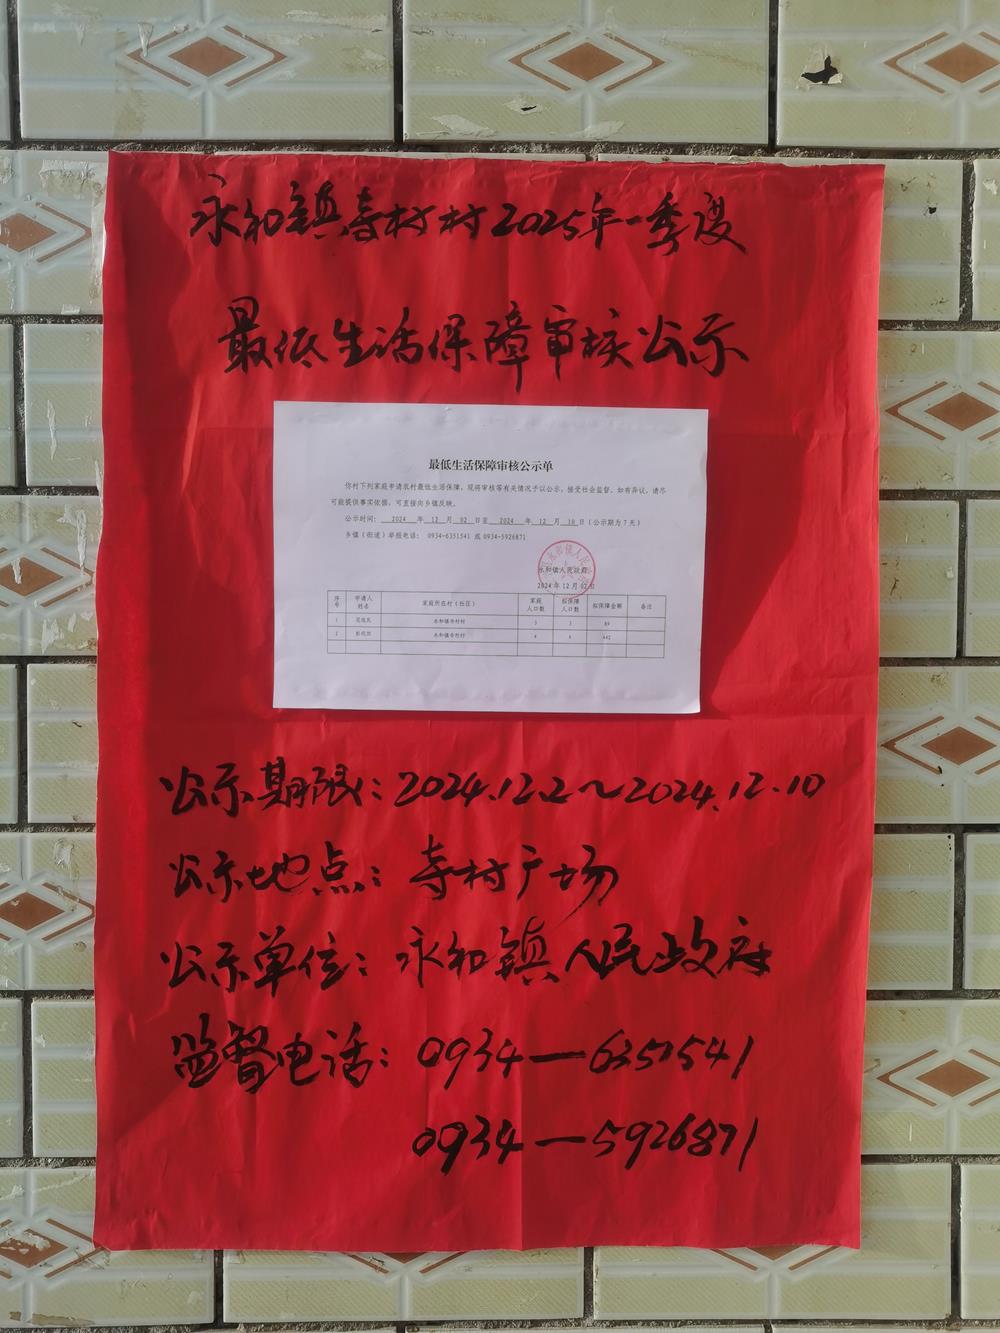 永和镇寺村村2025年一季度
最低生活保障审核公示
最低生活保障审核公示单
你村下列家庭申请农村最低生活保障，现将审核等有关情况予以公示，接受社会监督。如有异议，请尽
可能提供事实依据，可直接向乡镇反映。
公示时间： 2024 年 12 月 02 日至 2024 年 12 月 10 日（公示期为7天）
乡镇（街道）举报电话： 0934-6351541 或 0934-5926871
永和镇人民政府
2024 年 12 月 02 日
序号 申请人姓名 家庭所在村（社区） 家庭人口数 拟保障人口数 拟保障金额 备注
1 永和镇寺村村 3 3 89
2 永和镇寺村村 4 4 442
公示期限：2024.12.2～2024.12.10
公示地点：寺村广场
公示单位：永和镇人民政府
监督电话：0934—6351541
0934—5926871